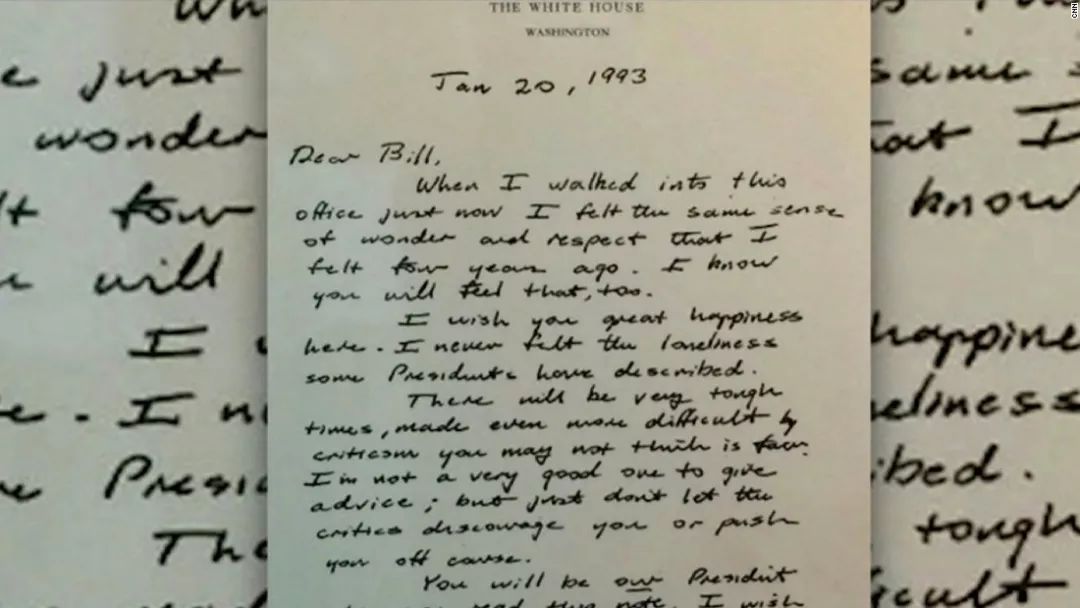 THE WHITE HOUSE
WASHINGTON
Jan 20, 1993
Dear Bill,
When I walked into this
office just now I felt the same sense
of wonder and respect that I
felt four years ago. I know
you will feel that, too.
I wish you great happiness
here. I never felt the loneliness
some Presidents have described.
There will be very tough
times, made even more difficult by
criticism you may not think is fair.
I'm not a very good one to give
advice; but just don't let the
critics discourage you or push
you off course.
You will be our President
read this note. I wish
CNN